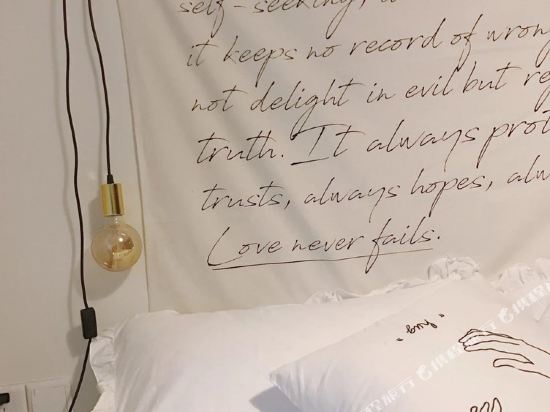 self-seeking,
it keeps no record of wrong
not delight in evil but re
truth. It always prot
trusts, always hopes, alw
Love never fails.